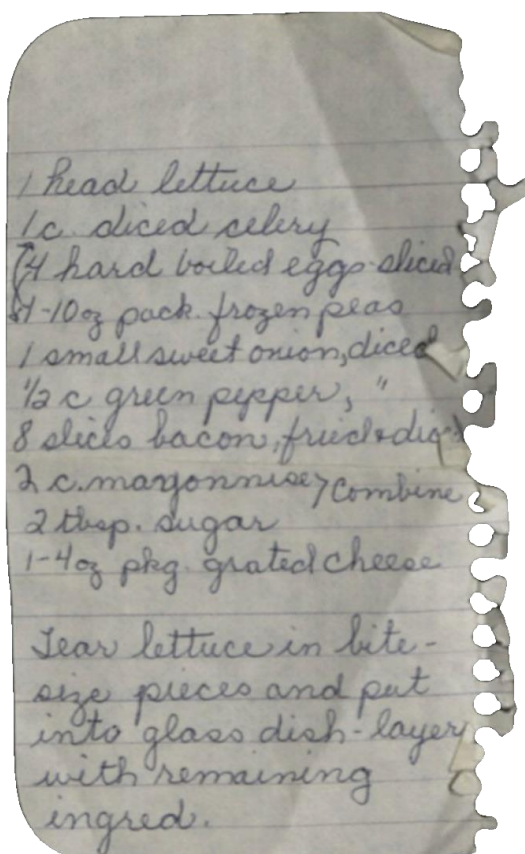 1 head lettuce
1 c. diced celery
4 hard boiled eggs-sliced
1-10oz pack. frozen peas
1 small sweet onion, diced
1/2 c green pepper, "
8 slices bacon, fried &
2 c. mayonnise > combine
2 tbsp. sugar
1-4oz pkg. grated cheese
Tear lettuce in bite-
size pieces and put
into glass dish-layer
with remaining
ingred.